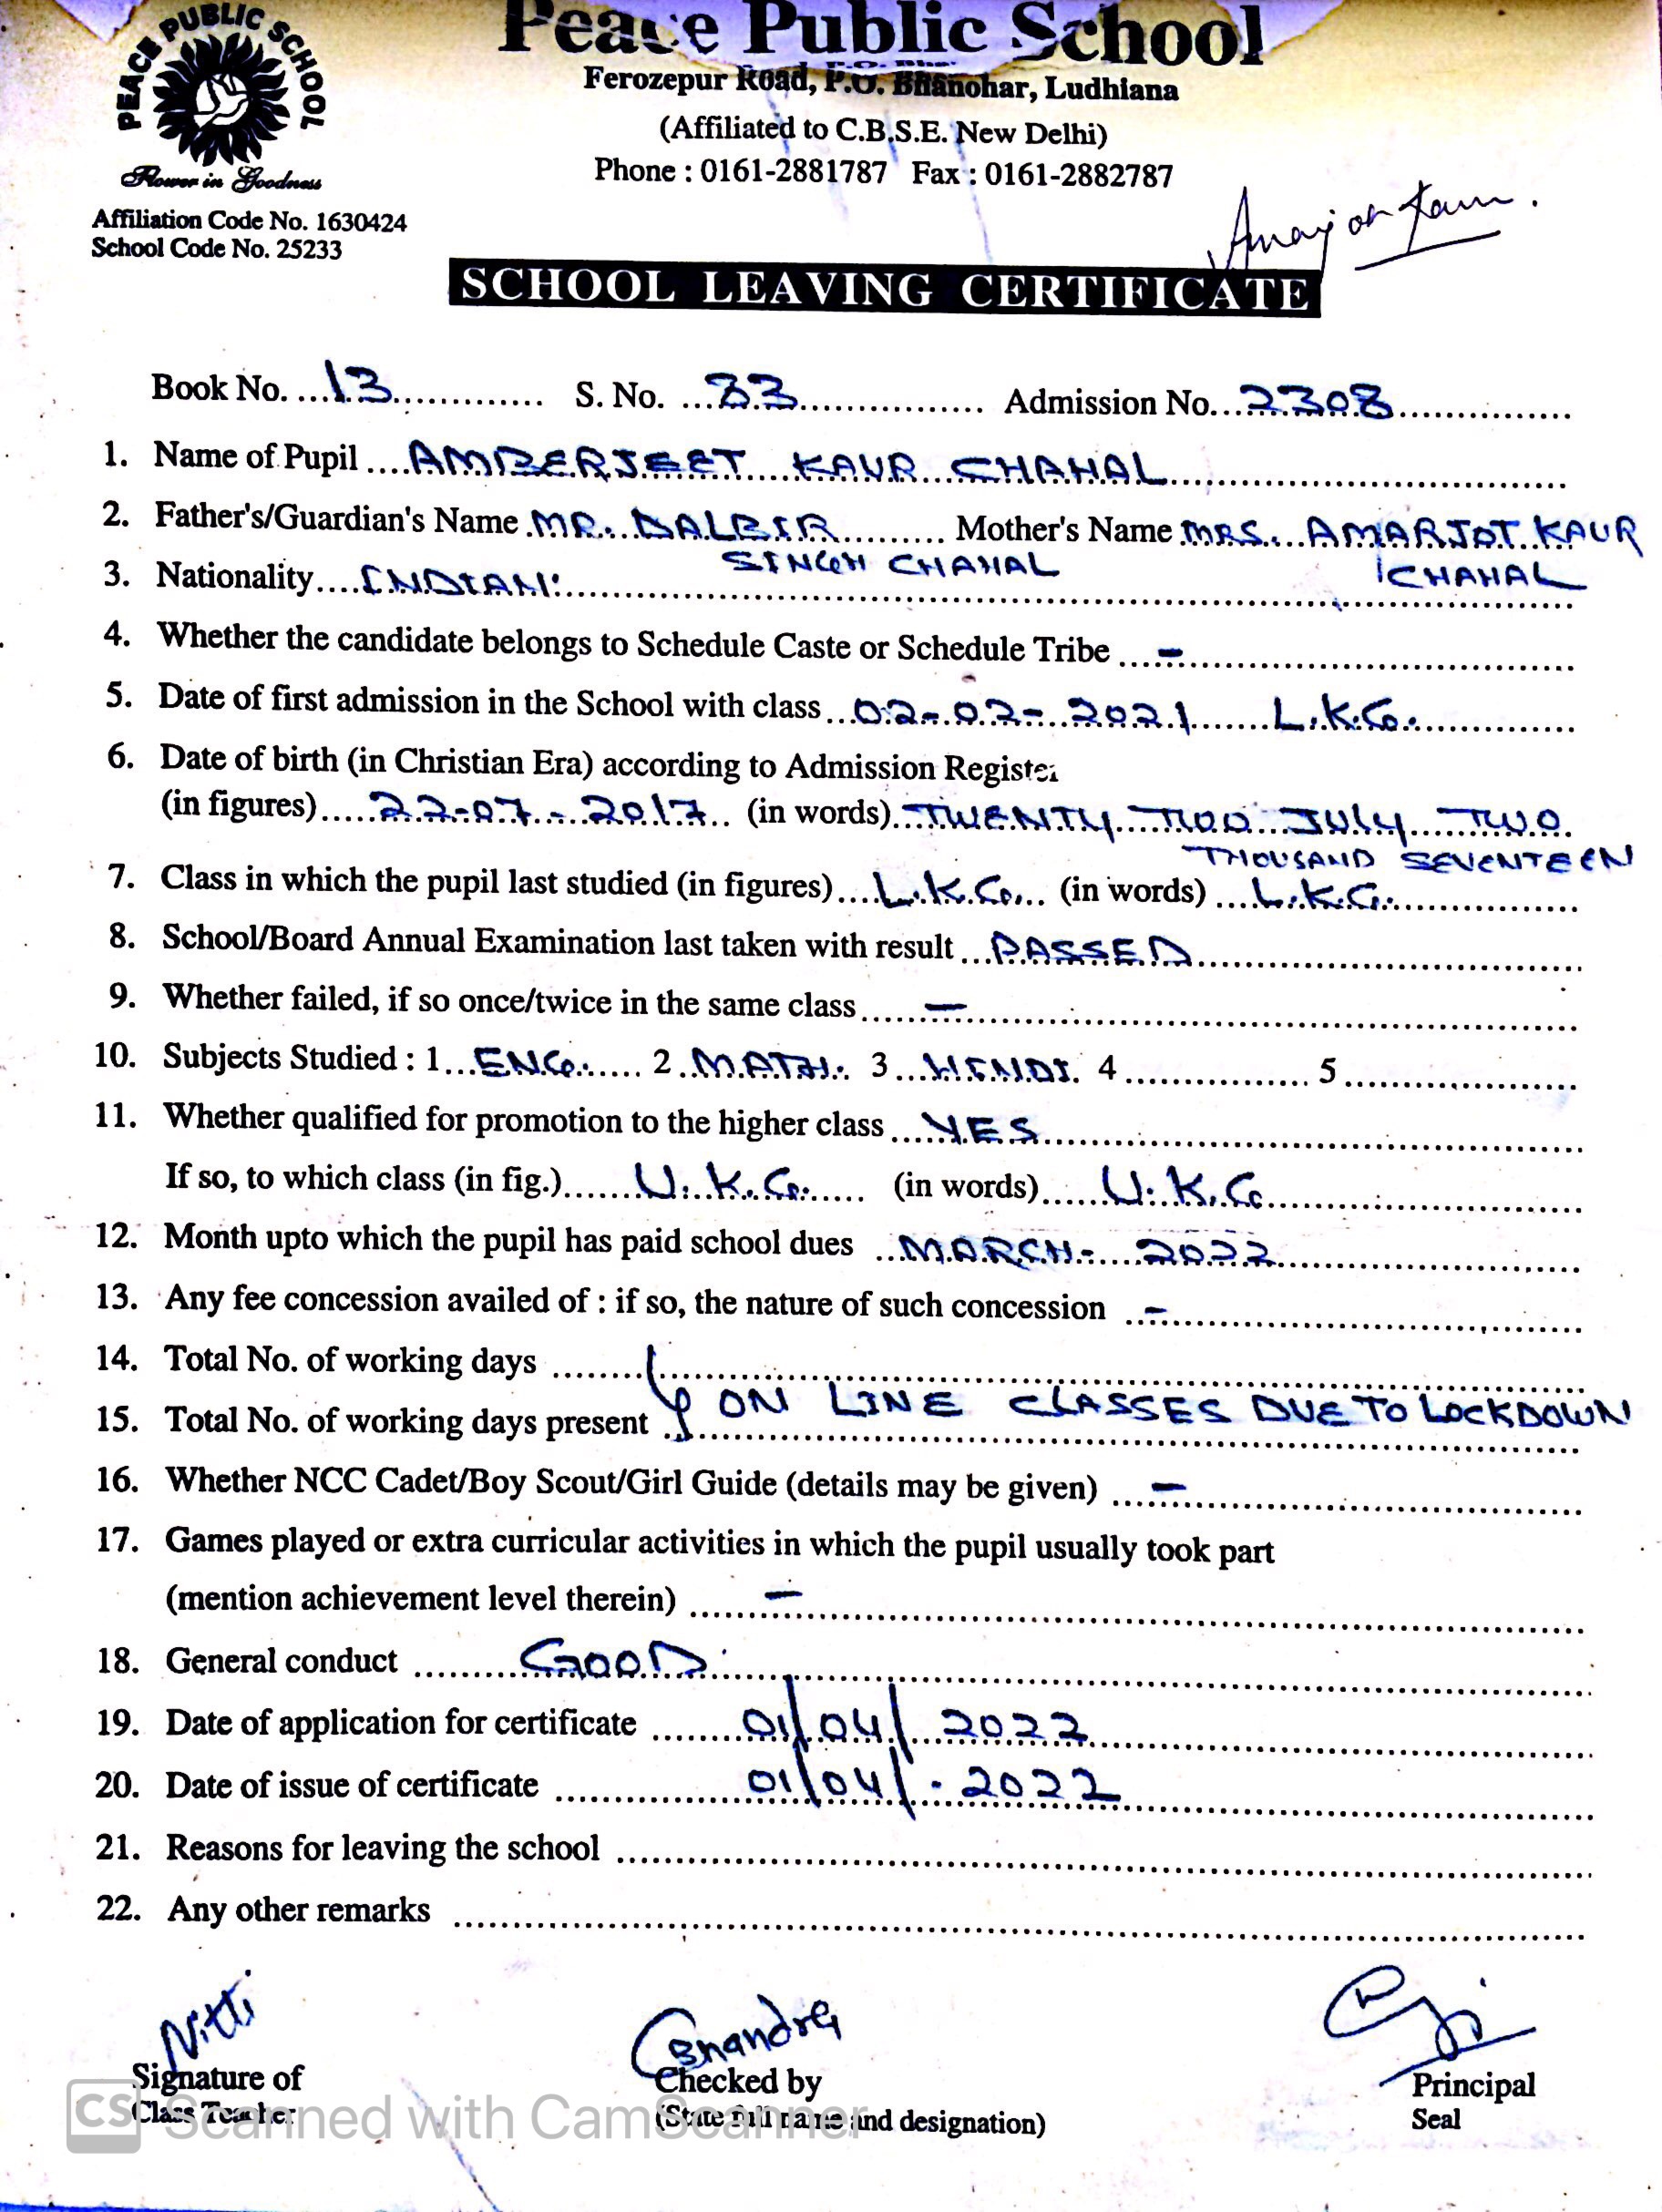 PEACE PUBLIC SCHOOL
Power in Goodness
Affiliation Code No. 1630424
School Code No. 25233
Peace Public School
Ferozepur Road, P.O. Bhanohar, Ludhiana
(Affiliated to C.B.S.E. New Delhi)
Phone : 0161-2881787 Fax : 0161-2882787
Amarjot Kaur.
SCHOOL LEAVING CERTIFICATE
Book No. 13 S. No. 33 Admission No. 2308
1. Name of Pupil AMBERJEET KAUR CHAHAL
2. Father's/Guardian's Name MR. DALBIR Mother's Name MRS. AMARJOT KAUR
SINGH CHAHAL CHAHAL
3. Nationality INDIAN
4. Whether the candidate belongs to Schedule Caste or Schedule Tribe -
5. Date of first admission in the School with class 02-02-2021 L.K.G.
6. Date of birth (in Christian Era) according to Admission Register
(in figures) 22-07-2017 (in words) TWENTY TOO JULY TWO
THOUSAND SEVENTEEN
7. Class in which the pupil last studied (in figures) L.K.G. (in words) L.K.G.
8. School/Board Annual Examination last taken with result PASSED
9. Whether failed, if so once/twice in the same class -
10. Subjects Studied : 1 ENG. 2 MATH. 3 HINDI. 4 5
11. Whether qualified for promotion to the higher class YES
If so, to which class (in fig.) U.K.G. (in words) U.K.G
12. Month upto which the pupil has paid school dues MARCH-2022
13. Any fee concession availed of : if so, the nature of such concession -
14. Total No. of working days
ON LINE CLASSES DUE TO LOCKDOWN
15. Total No. of working days present
16. Whether NCC Cadet/Boy Scout/Girl Guide (details may be given) -
17. Games played or extra curricular activities in which the pupil usually took part
(mention achievement level therein) -
18. General conduct GOOD
19. Date of application for certificate 01/04/2022
20. Date of issue of certificate 01/04/.2022
21. Reasons for leaving the school
22. Any other remarks
Nitti Chandra
Signature of Checked by Principal
Class Teacher (State full name and designation) Seal
CS Scanned with CamScanner